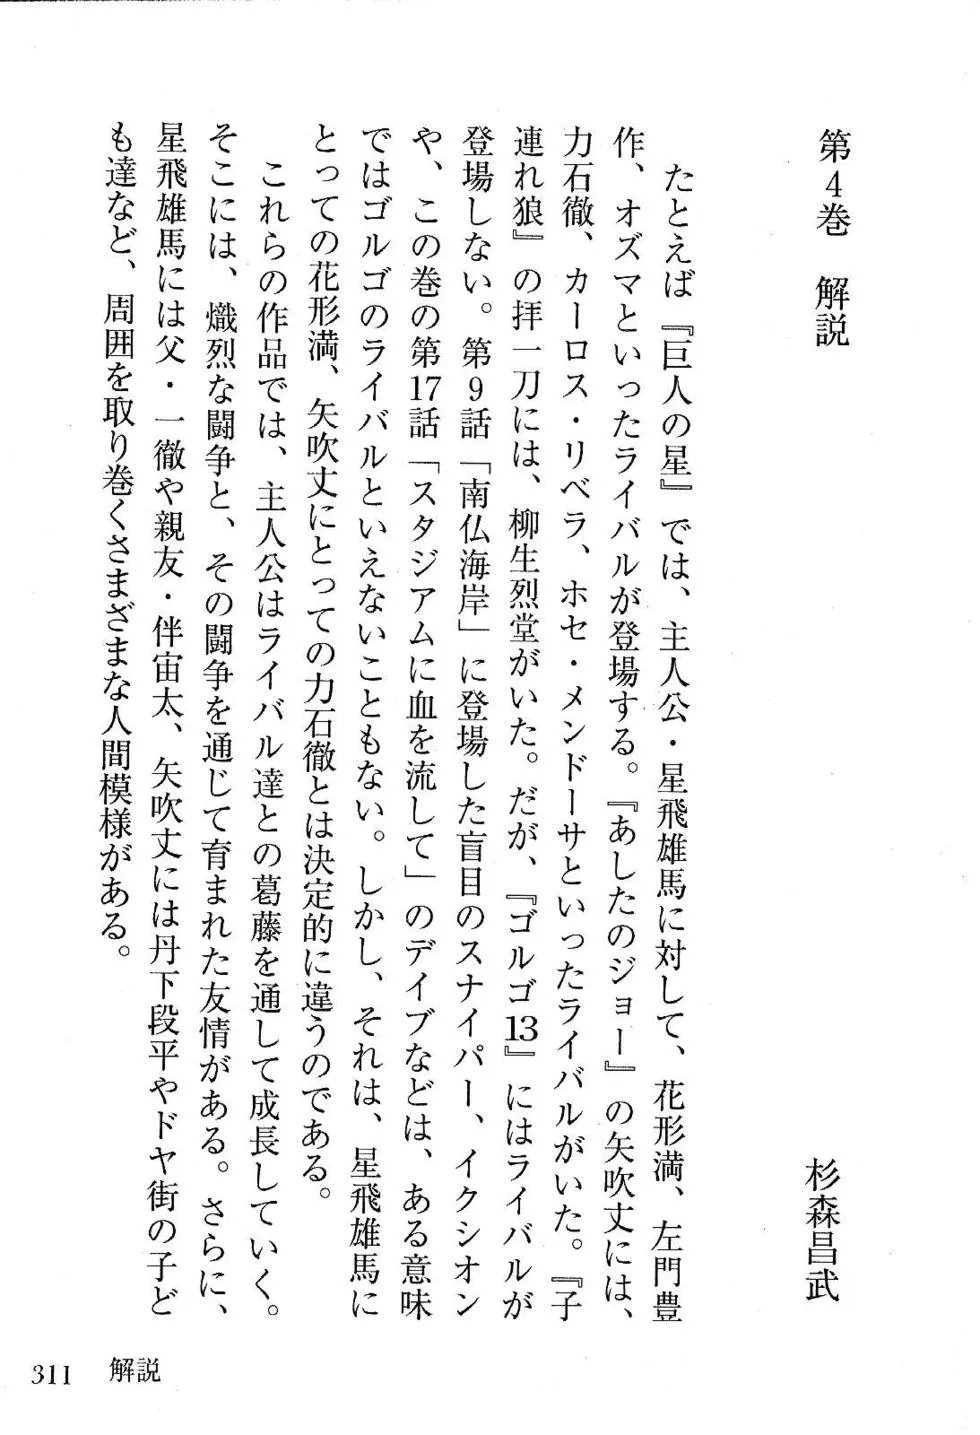 第4巻　解説
杉森昌武
　たとえば『巨人の星』では、主人公・星飛雄馬に対して、花形満、左門豊
作、オズマといったライバルが登場する。『あしたのジョー』の矢吹丈には、
力石徹、カーロス・リベラ、ホセ・メンドーサといったライバルがいた。『子
連れ狼』の拝一刀には、柳生烈堂がいた。だが、『ゴルゴ13』にはライバルが
登場しない。第9話「南仏海岸」に登場した盲目のスナイパー、イクシオン
や、この巻の第17話「スタジアムに血を流して」のデイブなどは、ある意味
ではゴルゴのライバルといえないこともない。しかし、それは、星飛雄馬に
とっての花形満、矢吹丈にとっての力石徹とは決定的に違うのである。
　これらの作品では、主人公はライバル達との葛藤を通して成長していく。
そこには、熾烈な闘争と、その闘争を通じて育まれた友情がある。さらに、
星飛雄馬には父・一徹や親友・伴宙太、矢吹丈には丹下段平やドヤ街の子ど
も達など、周囲を取り巻くさまざまな人間模様がある。
311　解説